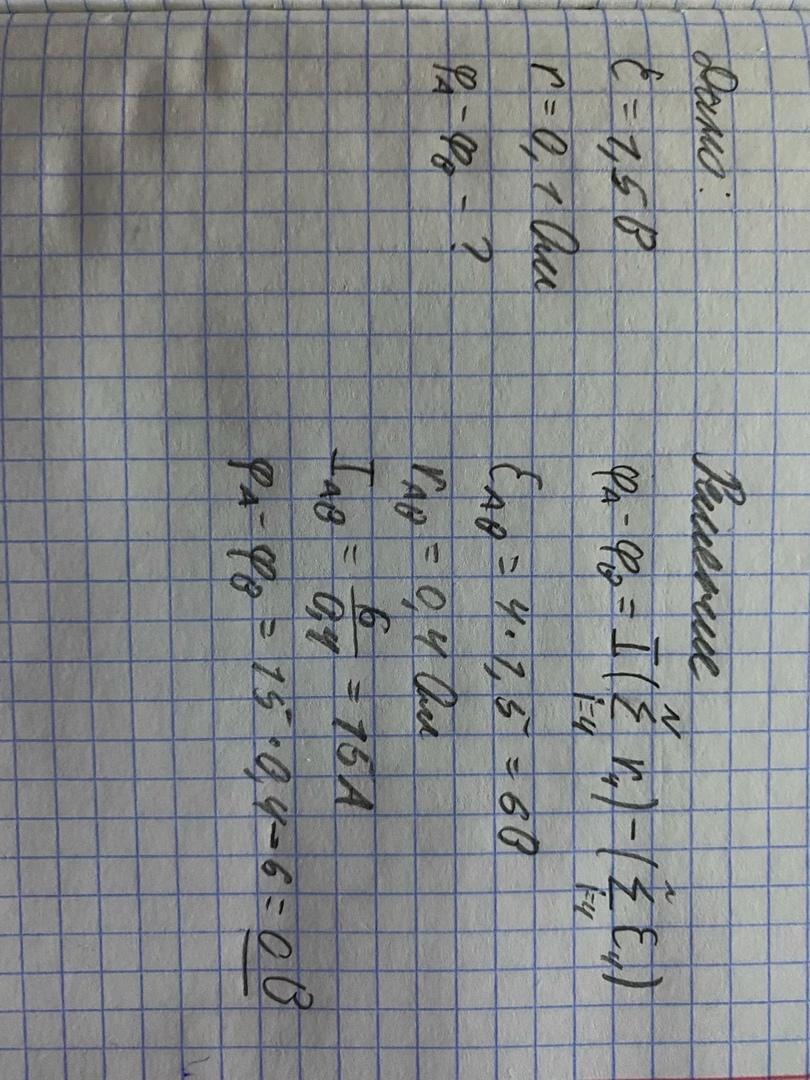 Дано:
ℰ = 1,5 В
r = 0,1 Ом
φA - φB - ?
Решение
φA - φB = I (∑ᴺi=4 r4) - (∑ᴺi=4 ℰ4)
ℰAB = 4·1,5 = 6В
rAB = 0,4 Ом
IAB = 6/0,4 = 15 А
φA - φB = 15·0,4-6 = 0 В